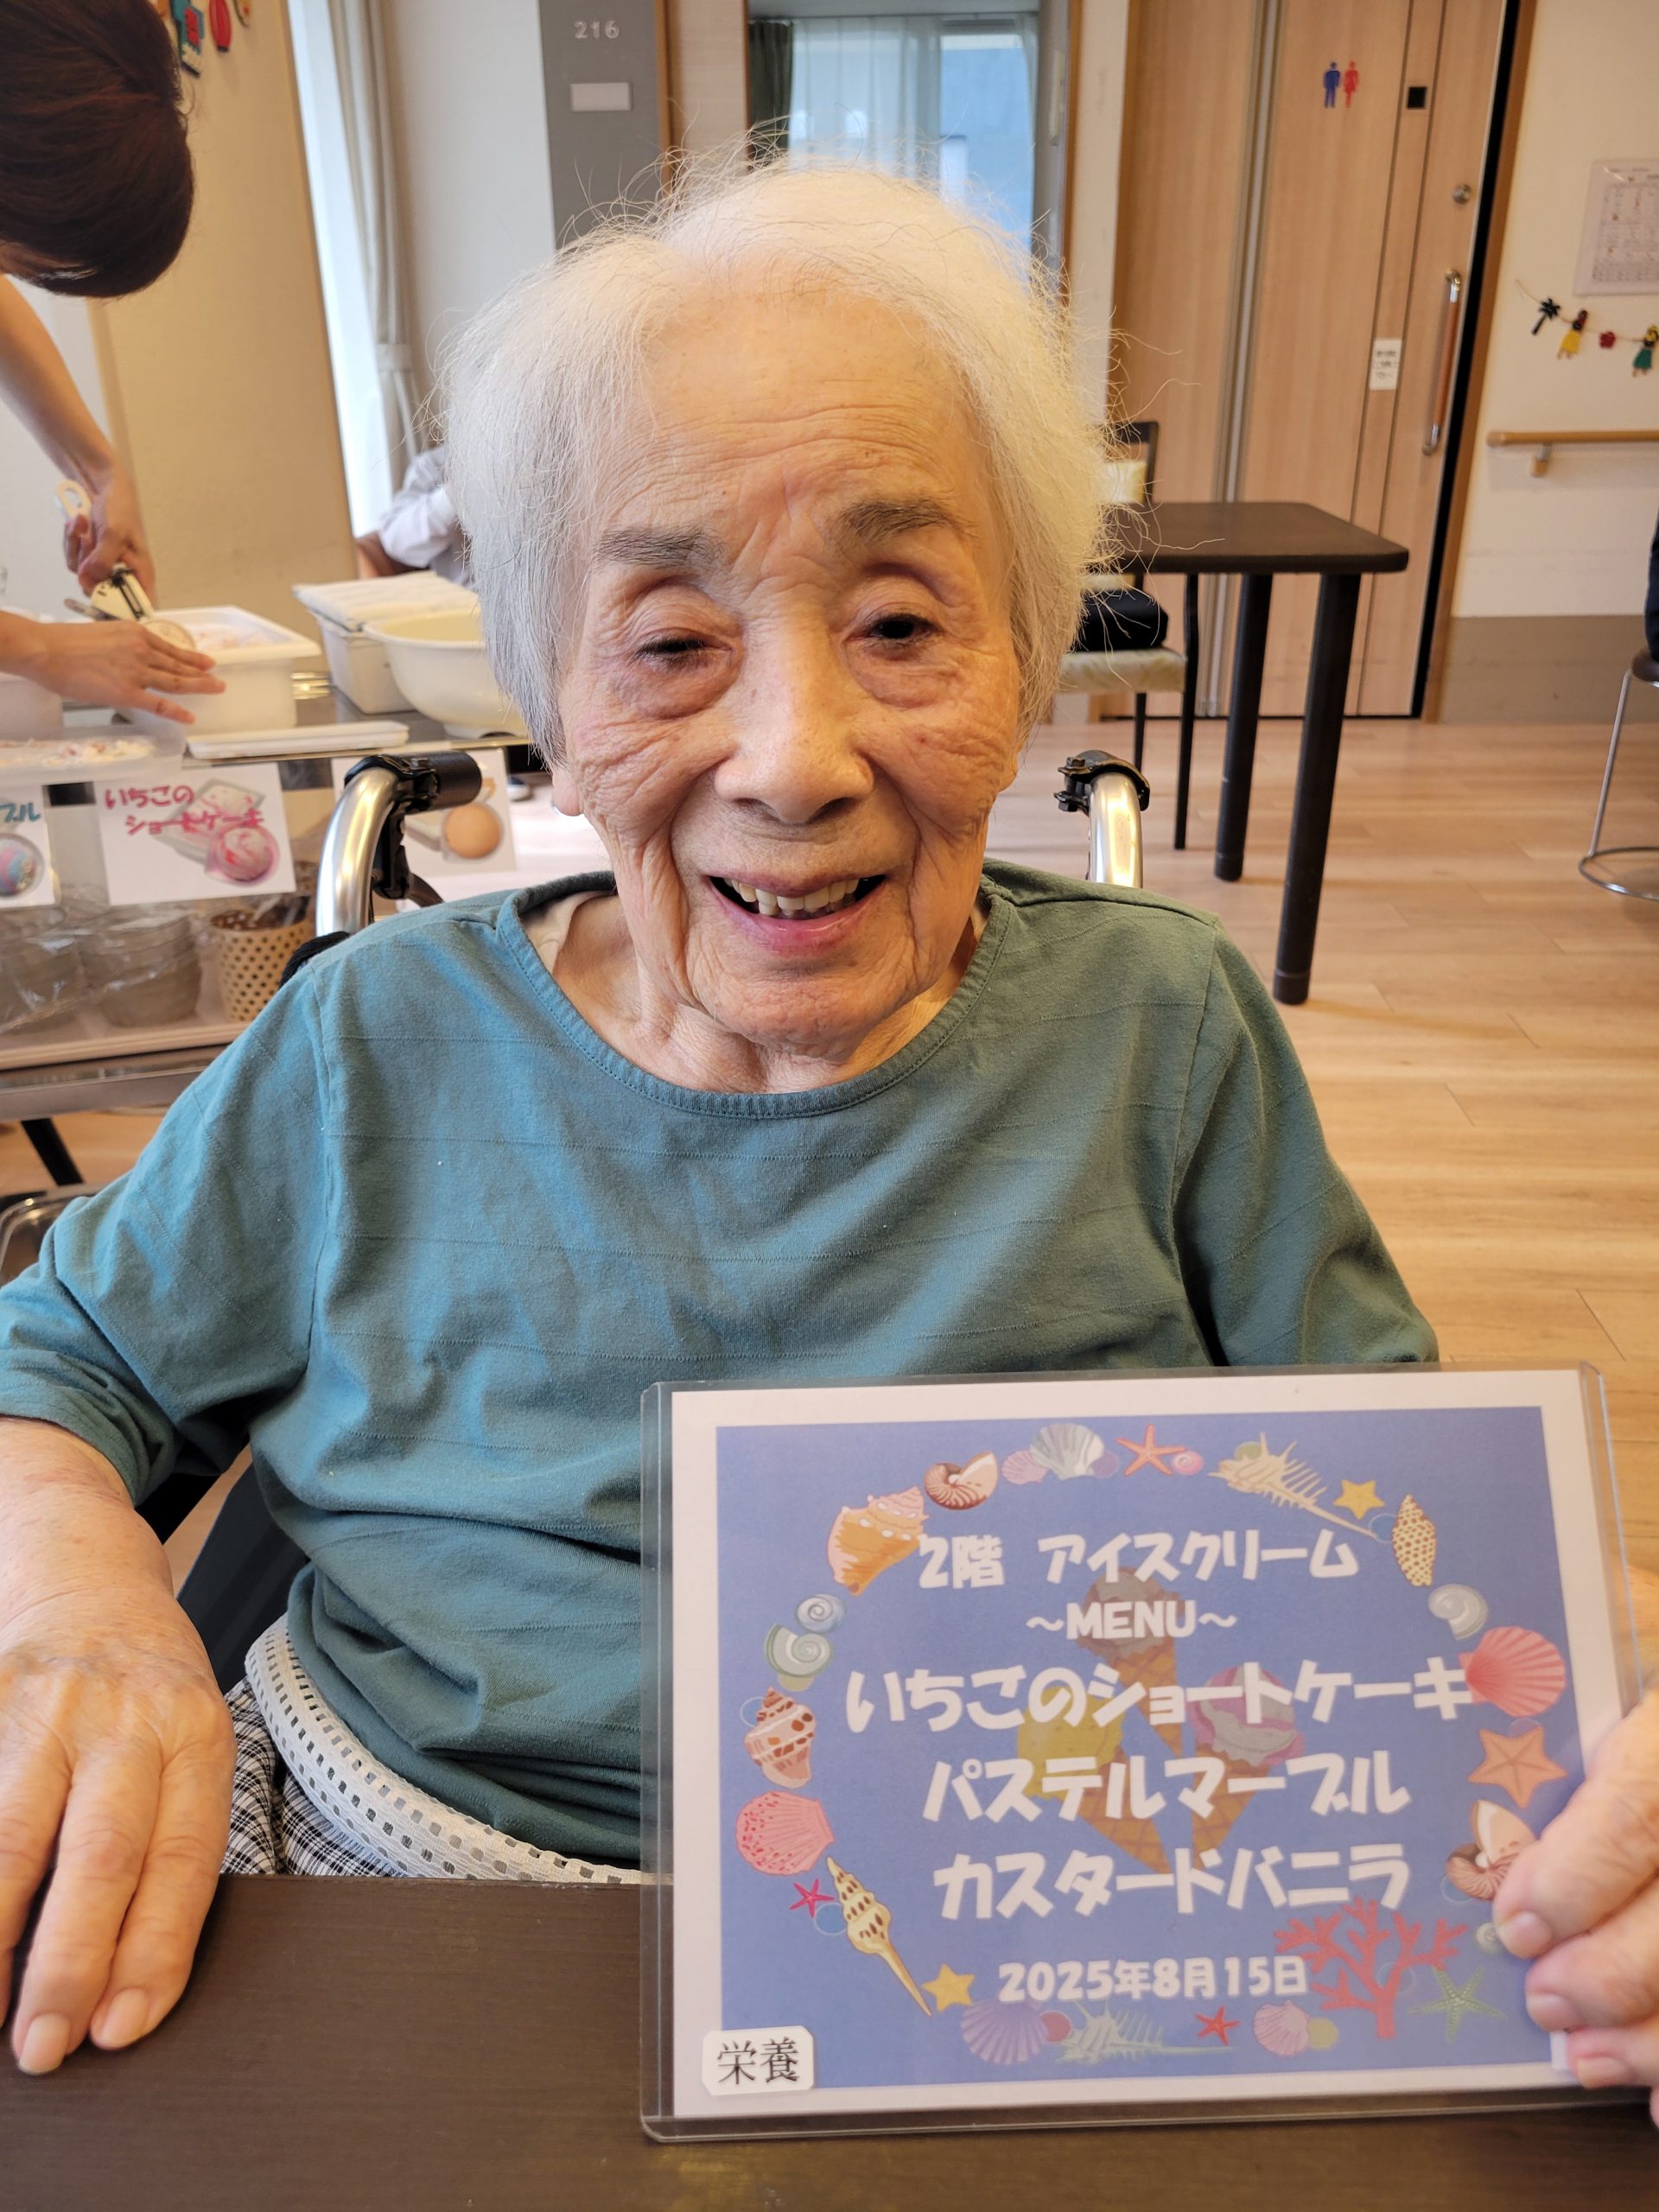 216
ブル
いちごの
ショートケーキ
2階 アイスクリーム
~MENU~
いちごのショートケーキ
パステルマーブル
カスタードバニラ
2025年8月15日
栄養